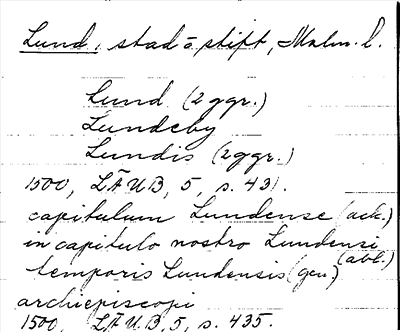 Lund, stad o. stift, Malm. l.
Lund (2 ggr.)
Lundeby
Lundis (2 ggr.)
1500, LÄUB, 5, s. 431.
capitulum Lundense (ack.)
in capitulo nostro Lundensi
(abl.)
temporis Lundensis (gen.)
archiepiscopi
1500, LÄUB, 5, s. 435.